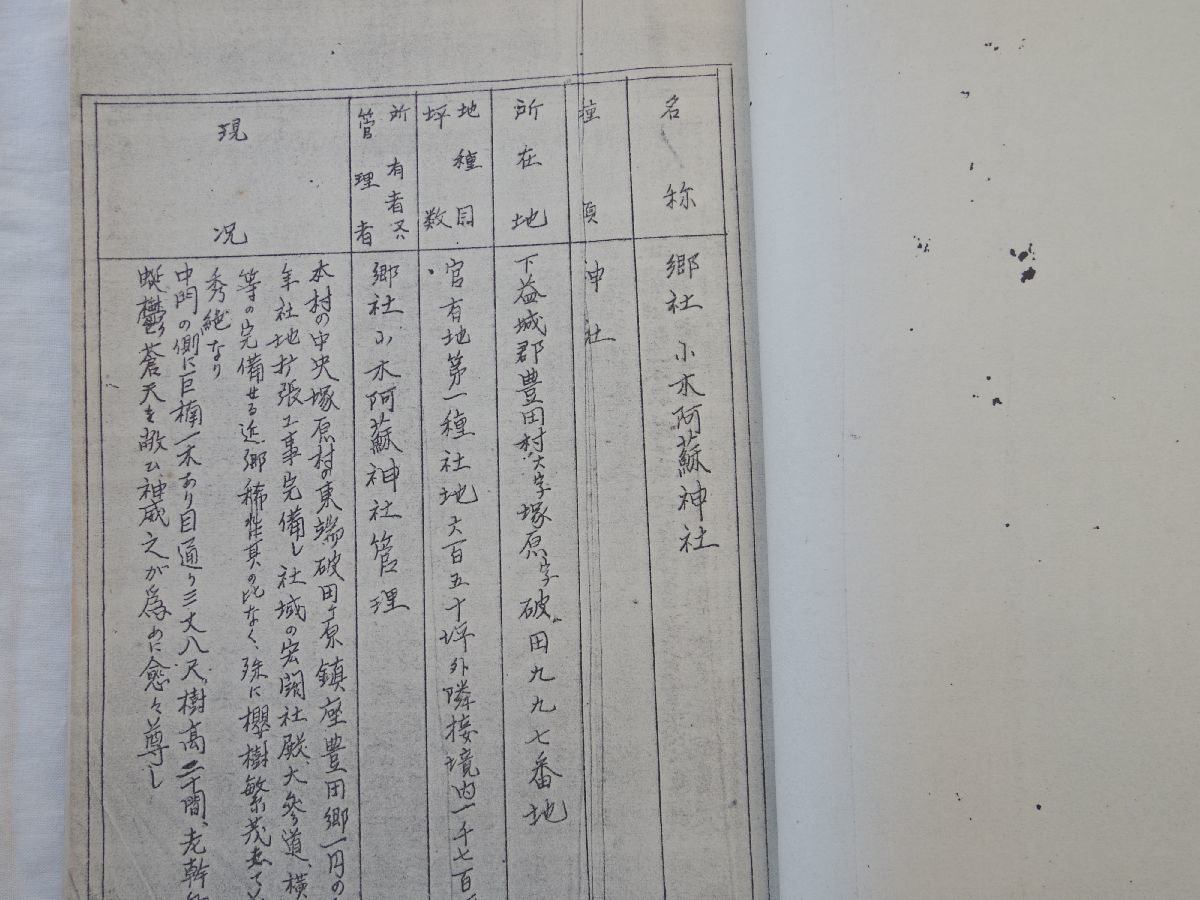 名称
郷社 小木阿蘇神社
種項
神社
所在地
下益城郡豊田村大字塚原字破田九九七番地
地種目
坪数
官有地第一種社地六百五十坪外隣接境内一千七百
所有者又ハ
管理者
郷社小木阿蘇神社管理
現況
本村の中央塚原村の東端破田ヶ原鎮座豊田郷一円の
年社地拡張工事完備し社域の宏闊社殿、大参道、横
等の完備せる近郷稀性其の比なく、殊に櫻樹繁茂
秀絶なり
中門の側に巨楠一木あり目通り三丈八尺、樹高二十間、老幹
蜒鬱蒼天を敵ひ神威之が為めに愈々尊し